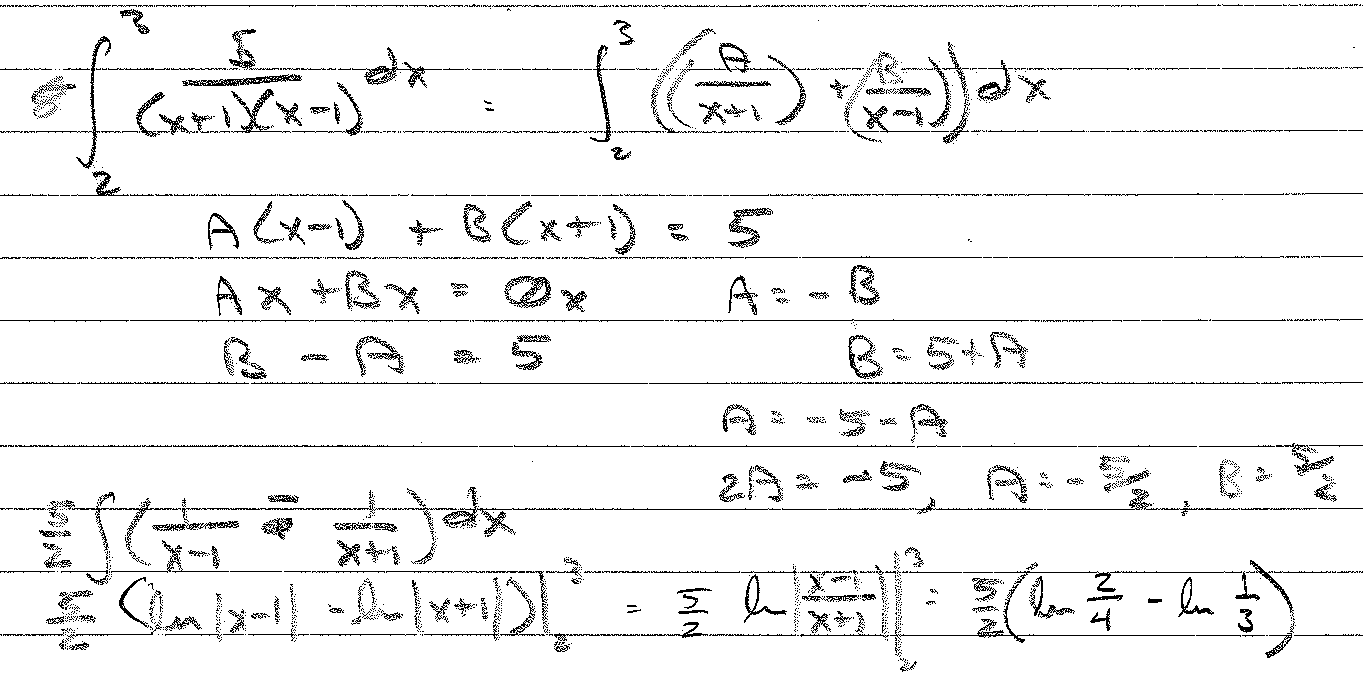 ∫₂³ 5/((x+1)(x-1)) dx = ∫₂³ ((A/(x+1)) + (B/(x-1))) dx
A(x-1) + B(x+1) = 5
Ax + Bx = 0x A = -B
B - A = 5 B = 5+A
A = -5-A
2A = -5, A = -5/2, B = 5/2
5/2 ∫(1/(x-1) - 1/(x+1)) dx
5/2 (ln|x-1| - ln|x+1|)|₂³ = 5/2 ln|(x-1)/(x+1)||₂³ = 5/2 (ln 2/4 - ln 1/3)